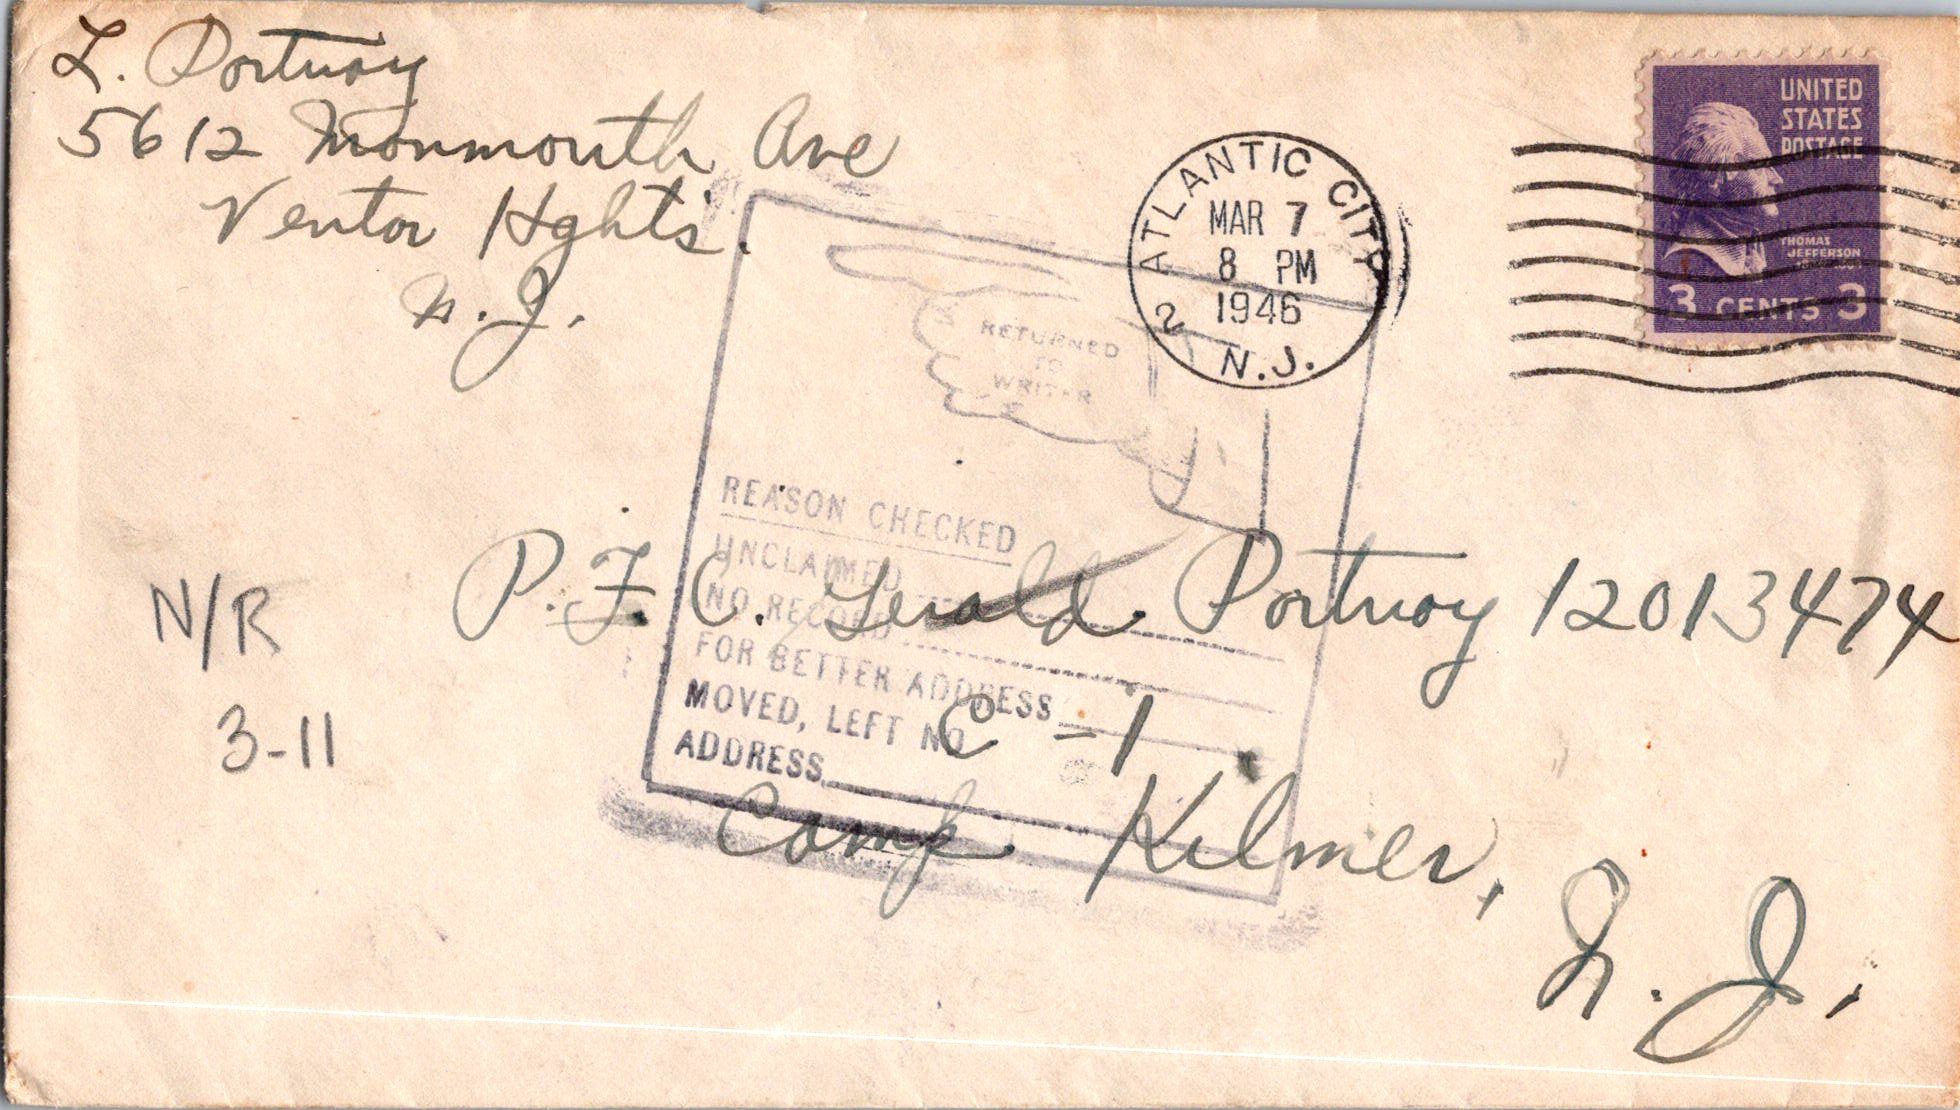 L. Portnoy
5612 Monmouth Ave
Ventor Hghts.
N. J.
ATLANTIC CITY
MAR 7
8 PM
1946
2
N.J.
UNITED
STATES
POSTAGE
THOMAS
JEFFERSON
3 CENTS 3
RETURNED
TO
WRITER
REASON CHECKED
UNCLAIMED
NO RECORD
FOR BETTER ADDRESS
MOVED, LEFT NO
ADDRESS
N/R
3-11
P.F.C. Gerald Portnoy 12013474
C-1
Camp Kilmer,
N. J.